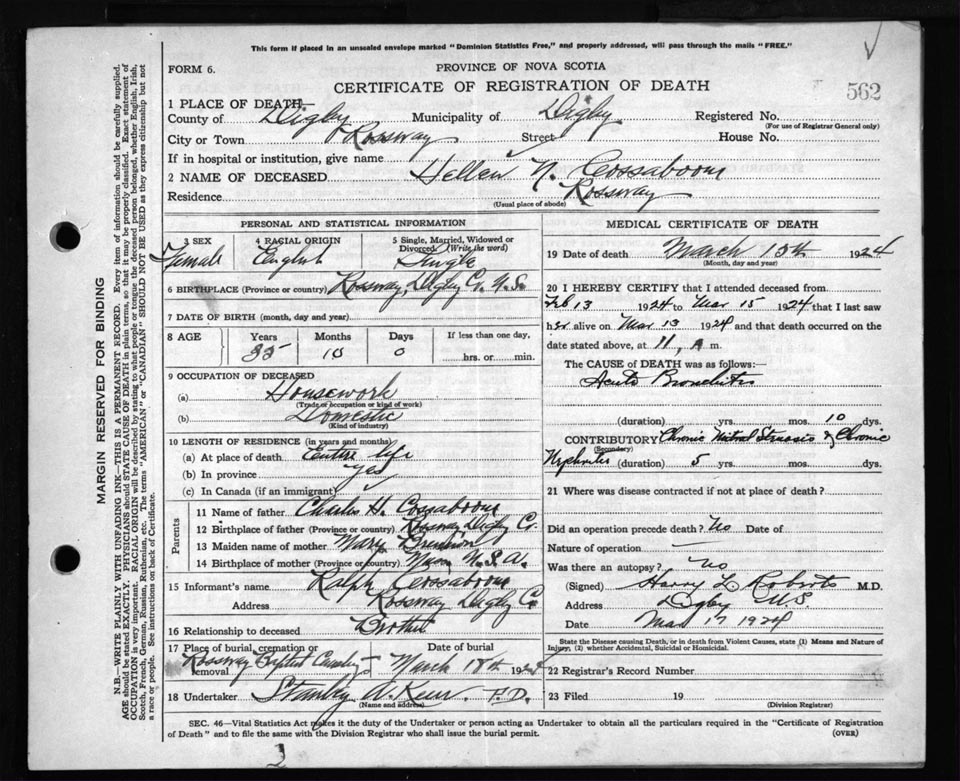 This form if placed in an unsealed envelope marked "Dominion Statistics Free," and properly addressed, will pass through the mails "FREE."
FORM 6.
PROVINCE OF NOVA SCOTIA
CERTIFICATE OF REGISTRATION OF DEATH
562
1 PLACE OF DEATH—
County of Digby Municipality of Digby Registered No.
(For use of Registrar General only)
City or Town Rossway Street House No.
If in hospital or institution, give name
2 NAME OF DECEASED Hellen N. Cossaboom
Residence Rossway
(Usual place of abode)
PERSONAL AND STATISTICAL INFORMATION
3 SEX 4 RACIAL ORIGIN 5 Single, Married, Widowed or Divorced (Write the word)
Female English Single
6 BIRTHPLACE (Province or country) Rossway, Digby Co. N.S.
7 DATE OF BIRTH (month, day and year)
8 AGE Years Months Days If less than one day,
35 10 0 hrs. or min.
9 OCCUPATION OF DECEASED
(a) Housework
(Trade or occupation or kind of work)
(b) Domestic
(Kind of industry)
10 LENGTH OF RESIDENCE (in years and months)
(a) At place of death Entire life
(b) In province yes
(c) In Canada (if an immigrant)
Parents
11 Name of father Charles H. Cossaboom
12 Birthplace of father (Province or country) Rossway Digby Co.
13 Maiden name of mother Mary
14 Birthplace of mother (Province or country) Mass. U.S.A.
15 Informant's name Ralph Cossaboom
Address Rossway Digby Co.
16 Relationship to deceased Brother
17 Place of burial, cremation or removal Date of burial
Rossway Baptist Cemetery March 18th 1924
18 Undertaker Stanley W. P.D.
(Name and address)
MEDICAL CERTIFICATE OF DEATH
19 Date of death March 15th 1924
(Month, day and year)
20 I HEREBY CERTIFY that I attended deceased from
Feb 13 1924 to Mar 15 1924 that I last saw
her alive on Mar 13 1924 and that death occurred on
date stated above, at 11, A m.
The CAUSE of DEATH was as follows:—
Acute Bronchitis
(duration) yrs. mos. 10 dys.
CONTRIBUTORY Chronic Mitral Stenosis & Chronic
(Secondary)
Nephritis (duration) 5 yrs. mos. dys.
21 Where was disease contracted if not at place of death?
Did an operation precede death? No Date of
Nature of operation
Was there an autopsy? No
(Signed) Harry L. Roberts M.D.
Address Digby N.S.
Date Mar 17 1924
State the Disease causing Death, or in death from Violent Causes, state (1) Means and Nature of
Injury, (2) whether Accidental, Suicidal or Homicidal.
22 Registrar's Record Number
23 Filed 19
(Division Registrar)
SEC. 46—Vital Statistics Act makes it the duty of the Undertaker or person acting as Undertaker to obtain all the particulars required in the "Certificate of Registration
of Death" and to file the same with the Division Registrar who shall issue the burial permit.
(OVER)
2
MARGIN RESERVED FOR BINDING
N.B.—WRITE PLAINLY WITH UNFADING INK—THIS IS A PERMANENT RECORD. Every item of information should be carefully supplied.
AGE should be stated EXACTLY. PHYSICIANS should STATE CAUSE OF DEATH in plain terms, so that it may be properly classified. Exact statement of
OCCUPATION is very important. RACIAL ORIGIN will be described by stating to what people or tongue the deceased person belonged, whether English, Irish,
Scotch, French, German, Russian, Ruthenian, etc. The terms "AMERICAN" or "CANADIAN" SHOULD NOT BE USED as they express citizenship but not
a race or people. See instructions on back of Certificate.